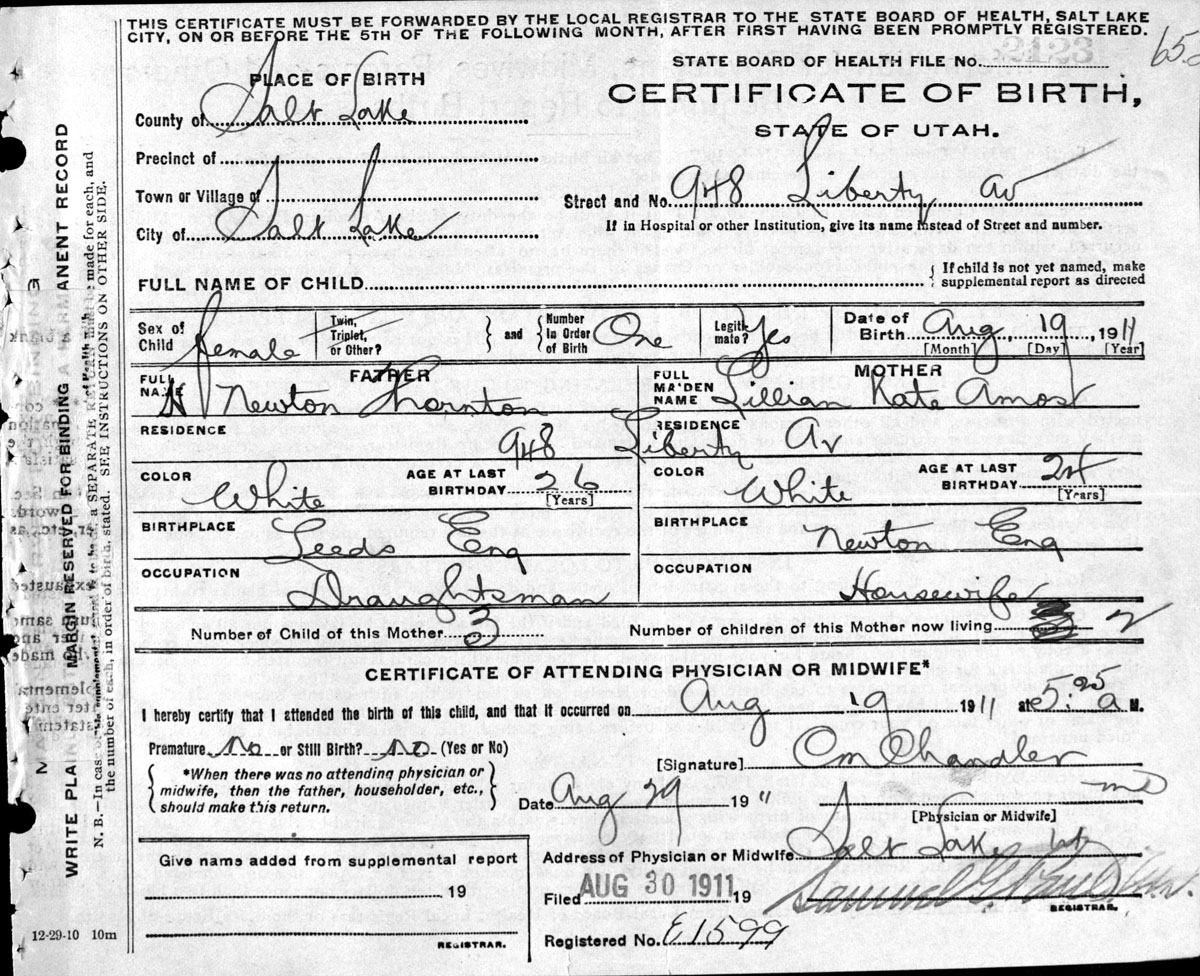 THIS CERTIFICATE MUST BE FORWARDED BY THE LOCAL REGISTRAR TO THE STATE BOARD OF HEALTH, SALT LAKE
CITY, ON OR BEFORE THE 5TH OF THE FOLLOWING MONTH, AFTER FIRST HAVING BEEN PROMPTLY REGISTERED.
PLACE OF BIRTH
STATE BOARD OF HEALTH FILE No.
CERTIFICATE OF BIRTH,
STATE OF UTAH.
County of Salt Lake
Precinct of
Town or Village of
City of Salt Lake
Street and No. 948 Liberty Av
If in Hospital or other Institution, give its name instead of Street and number.
FULL NAME OF CHILD
{ If child is not yet named, make
supplemental report as directed
Sex of Child female
Twin, Triplet, or Other? } and { Number In Order of Birth One
Legiti-mate? Yes
Date of Birth Aug 19, 1911
[Month] [Day] [Year]
FATHER
MOTHER
FULL NAME H Newton Thornton
FULL MAIDEN NAME Lillian Kate Amos
RESIDENCE 948 Liberty Av
RESIDENCE
COLOR White
AGE AT LAST BIRTHDAY 26 [Years]
COLOR White
AGE AT LAST BIRTHDAY 24 [Years]
BIRTHPLACE Leeds Eng
BIRTHPLACE Newton Eng
OCCUPATION Draughtsman
OCCUPATION Housewife
Number of Child of this Mother 3
Number of children of this Mother now living 2
CERTIFICATE OF ATTENDING PHYSICIAN OR MIDWIFE*
I hereby certify that I attended the birth of this child, and that it occurred on Aug 19 1911 at 5:25 a M.
Premature No or Still Birth? No (Yes or No)
{ *When there was no attending physician or
midwife, then the father, householder, etc.,
should make this return. }
[Signature] CM Chandler
MD
[Physician or Midwife]
Date Aug 29 1911
Address of Physician or Midwife Salt Lake Ut
Give name added from supplemental report
19
REGISTRAR.
Filed AUG 30 1911 19
REGISTRAR.
Registered No. E1599
12-29-10 10m
WRITE PLAINLY
MARGIN RESERVED FOR BINDING
A PERMANENT RECORD
N. B.—In case of
a SEPARATE RETURN must be made for each, and
the number of each, in order of birth, stated. SEE INSTRUCTIONS ON OTHER SIDE.